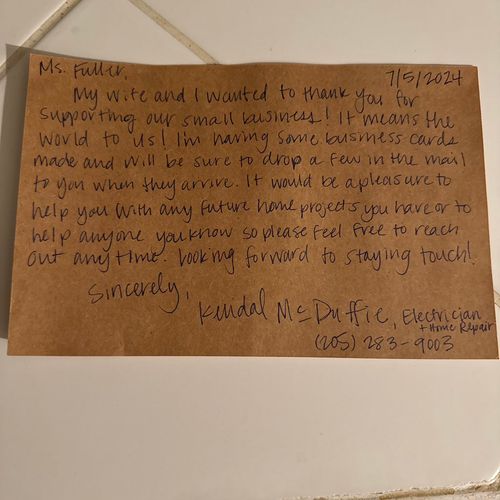 Ms. Fuller,
7/5/2024
My wife and I wanted to thank you for
supporting our small business! It means the
world to us! I'm having some business cards
made and will be sure to drop a few in the mail
to you when they arrive. It would be a pleasure to
help you with any future home projects you have or to
help anyone you know so please feel free to reach
out anytime. Looking forward to staying touch!
Sincerely,
Kendal McDuffie, Electrician
+ Home Repair
(205) 283-9003